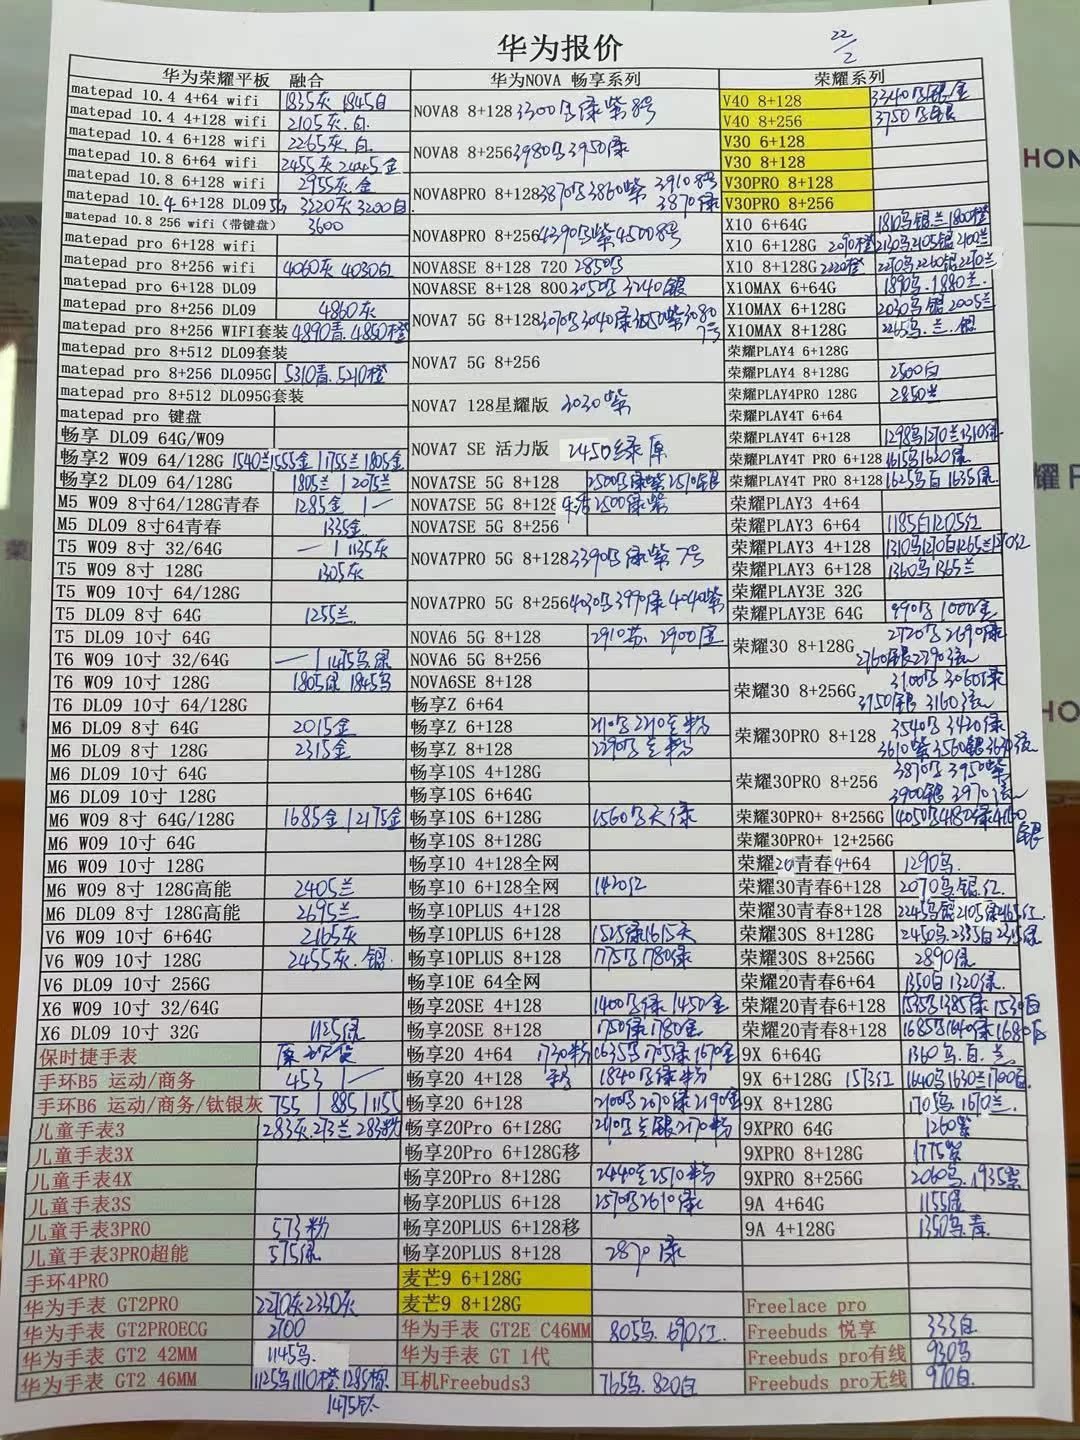 华为报价
22/2
华为荣耀平板 融合 华为NOVA 畅享系列 荣耀系列
matepad 10.4 4+64 wifi 1835灰 1845白
matepad 10.4 4+128 wifi 2105灰.白.
matepad 10.4 6+128 wifi 2265灰.白
matepad 10.8 6+64 wifi 2455灰 2445金
matepad 10.8 6+128 wifi 2955灰.金
matepad 10.4 6+128 DL09 3220灰 3200白
matepad 10.8 256 wifi（带键盘） 3600
matepad pro 6+128 wifi
matepad pro 8+256 wifi 4060灰 4030白
matepad pro 6+128 DL09
matepad pro 8+256 DL09 4860灰
matepad pro 8+256 WIFI套装 4890青.4850橙
matepad pro 8+512 DL09套装
matepad pro 8+256 DL095G 5310青.5210橙
matepad pro 8+512 DL095G套装
matepad pro 键盘
畅享 DL09 64G/W09
畅享2 W09 64/128G 1540兰1555金|1755兰1805金
畅享2 DL09 64/128G 1805兰|2075兰
M5 W09 8寸64/128G青春 1285金|一
M5 DL09 8寸64青春 1335金
T5 W09 8寸 32/64G 一|1135灰
T5 W09 8寸 128G 1305灰
T5 W09 10寸 64/128G
T5 DL09 8寸 64G 1255兰
T5 DL09 10寸 64G
T6 W09 10寸 32/64G 一|1475乌.绿
T6 W09 10寸 128G 1805绿 1845乌
T6 DL09 10寸 64/128G
M6 DL09 8寸 64G 2015金
M6 DL09 8寸 128G 2315金
M6 DL09 10寸 64G
M6 DL09 10寸 128G
M6 W09 8寸 64G/128G 1685金|2175金
M6 W09 10寸 64G
M6 W09 10寸 128G
M6 W09 8寸 128G高能 2405兰
M6 DL09 8寸 128G高能 2695兰
V6 W09 10寸 6+64G 2165灰
V6 W09 10寸 6+128G 2455灰.银.
V6 DL09 10寸 256G
X6 W09 10寸 32/64G
X6 DL09 10寸 32G 1125绿
保时捷手表
手环B5 运动/商务 453|一
手环B6 运动/商务/钛银灰 755|885|1155
儿童手表3 283灰.273兰 283粉
儿童手表3X
儿童手表4X
儿童手表3S
儿童手表3PRO 573粉
儿童手表3PRO超能 575绿
手环4PRO
华为手表 GT2PRO 2210灰2340灰
华为手表 GT2PROECG 2100
华为手表 GT2 42MM 1145乌.
华为手表 GT2 46MM 1125乌1110橙.1285棕
1475钛
NOVA8 8+128 3300乌绿紫8号
NOVA8 8+256 3980乌3950绿
NOVA8PRO 8+128 3870乌3860紫 3910 8号
3870绿
NOVA8PRO 8+256 4390乌紫4500 8号
NOVA8SE 8+128 720 2850乌
NOVA8SE 8+128 800 3050乌 3240银
NOVA7 5G 8+128 3070乌3040绿3050紫3080
7号
NOVA7 5G 8+256
NOVA7 128星耀版 3030紫
NOVA7 SE 活力版 2450绿
NOVA7SE 5G 8+128 2500乌绿紫2510银
NOVA7SE 5G 8+128 乐活2500绿紫
NOVA7SE 5G 8+256
NOVA7PRO 5G 8+128 3390乌绿紫7号
NOVA7PRO 5G 8+256 4030乌3990绿4040紫
NOVA6 5G 8+128 2910苏.2900
NOVA6 5G 8+256
NOVA6SE 8+128
畅享Z 6+64
畅享Z 6+128
畅享Z 8+128
畅享10S 4+128G
畅享10S 6+64G
畅享10S 6+128G 1560乌天绿
畅享10S 8+128G
畅享10 4+128全网
畅享10 6+128全网 1420红
畅享10PLUS 4+128
畅享10PLUS 6+128 1525绿1615天
畅享10PLUS 8+128 1775乌1780绿
畅享10E 64全网
畅享20SE 4+128 1400乌绿 1450金
畅享20SE 8+128 1750绿1780金
畅享20 4+64 1730粉 1635乌1705绿1670金
畅享20 4+128 1840乌绿粉
畅享20 6+128 2100乌2070绿2190金
畅享20Pro 6+128G
畅享20Pro 6+128G移
畅享20Pro 8+128G
畅享20PLUS 6+128 2570乌2610绿
畅享20PLUS 6+128移
畅享20PLUS 8+128 2870绿
麦芒9 6+128G
麦芒9 8+128G
华为手表 GT2E C46MM 805乌.690红.
华为手表 GT 1代
耳机Freebuds3 765乌.820白
V40 8+128 3340乌银/金
V40 8+256 3750乌银
V30 6+128
V30 8+128
V30PRO 8+128
V30PRO 8+256
X10 6+64G 1810乌.银.兰1800橙
X10 6+128G 2090橙2130乌2105银2100兰
X10 8+128G 2220橙 2270乌2260银2270兰
X10MAX 6+64G 1890乌.1880兰.
X10MAX 6+128G 2030乌银2005兰
X10MAX 8+128G 2265乌.兰.银
荣耀PLAY4 6+128G
荣耀PLAY4 8+128G 2500白
荣耀PLAY4PRO 128G 2850兰
荣耀PLAY4T 6+64
荣耀PLAY4T 6+128 1298乌1270兰1310绿
荣耀PLAY4T PRO 6+128 1615乌1630绿
荣耀PLAY4T PRO 8+128 1625乌白1635绿.
荣耀PLAY3 4+64
荣耀PLAY3 6+64 1185白1205红
荣耀PLAY3 4+128 1310乌1270白1265兰1270红
荣耀PLAY3 6+128 1360乌1365兰
荣耀PLAY3E 32G
荣耀PLAY3E 64G 990乌1000金
荣耀30 8+128G 2720乌2690绿
2760银2790
荣耀30 8+256G 3100乌3060绿
3150银 3160
荣耀30PRO 8+128 3540乌 3420绿
3610紫3560银3630
荣耀30PRO 8+256 3870乌 3950紫
3900银 3970
荣耀30PRO+ 8+256G
荣耀30PRO+ 12+256G
荣耀20青春4+64 1290乌.
荣耀30青春6+128 2070乌.银.红.
荣耀30青春8+128 2245乌银2105绿2165红.
荣耀30S 8+128G
荣耀30S 8+256G 2890绿
荣耀20青春6+64 1350白1320绿.
荣耀20青春6+128 1535乌1385绿1539白
荣耀20青春8+128 1685乌1640绿1680白
9X 6+64G 1360乌.白.兰
9X 6+128G 1573红 1640乌1630兰1700白.
9X 8+128G 1705乌1670兰.
9XPRO 64G 1260紫
9XPRO 8+128G 1775紫
9XPRO 8+256G 2060乌.1935紫
9A 4+64G 1155绿
9A 4+128G 1350乌.青
Freelace pro
Freebuds 悦享 333白
Freebuds pro有线 930乌
Freebuds pro无线 910白.
HON